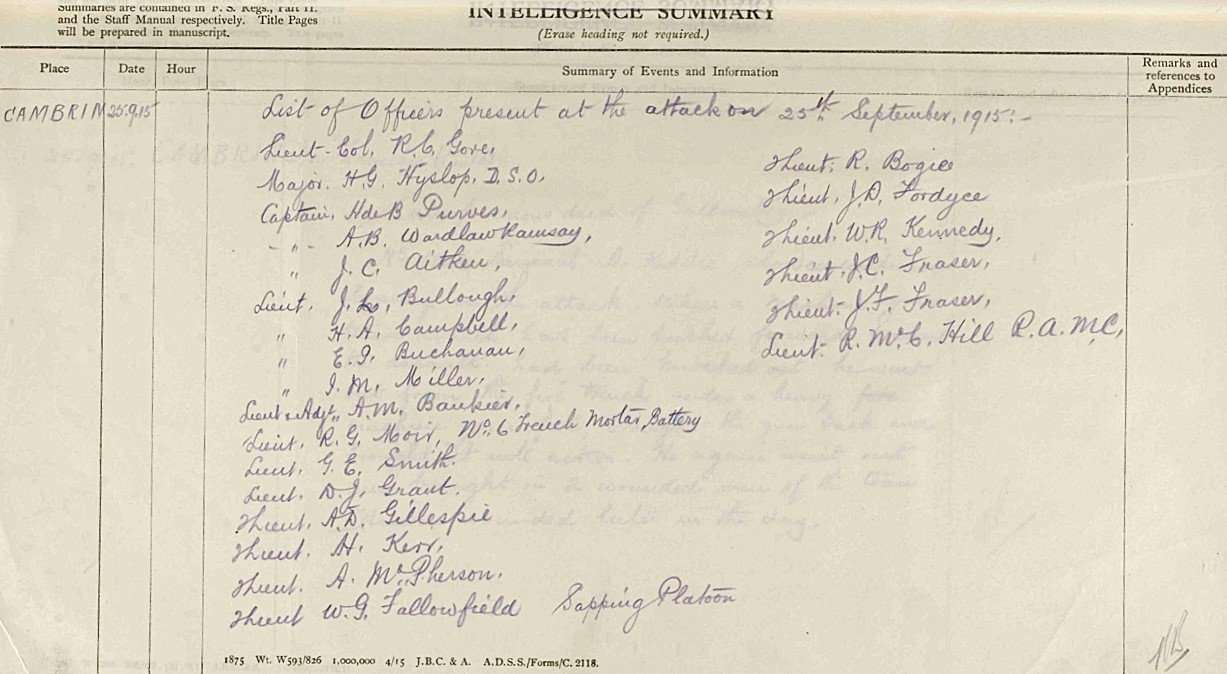 Summaries are contained in F. S. Regs., Part II.
and the Staff Manual respectively. Title Pages
will be prepared in manuscript.
INTELLIGENCE SUMMARY
(Erase heading not required.)
Place
Date
Hour
Summary of Events and Information
Remarks and
references to
Appendices
CAMBRIN 25.9.15
List of Officers present at the attack on 25th September, 1915:-
Lieut-Col. R.C. Gore,
Major. H.G. Hyslop, D.S.O,
Captain, H de B Purves,
- " - A.B. Wardlaw Ramsay,
" J. C. Aitken,
Lieut, J.L. Bullough,
" H.A. Campbell,
" E.I. Buchanan,
" I.M. Miller,
Lieut & Adjt, A.M. Bankier,
Lieut. R.G. Moir, No. 6 Trench Mortar Battery
Lieut. G.E. Smith.
Lieut. D.J. Grant.
2Lieut. A.D. Gillespie
2Lieut. H. Kerr,
2Lieut. A. McPherson.
2Lieut W.G. Fallowfield Sapping Platoon
2Lieut. R. Bogie
2Lieut, J.D. Fordyce
2Lieut. W.R. Kennedy,
2Lieut. J.C. Fraser,
2Lieut. J.F. Fraser,
Lieut. R. McC. Hill R.A.M.C,
1875 Wt. W593/826 1,000,000 4/15 J.B.C. & A. A.D.S.S./Forms/C. 2118.